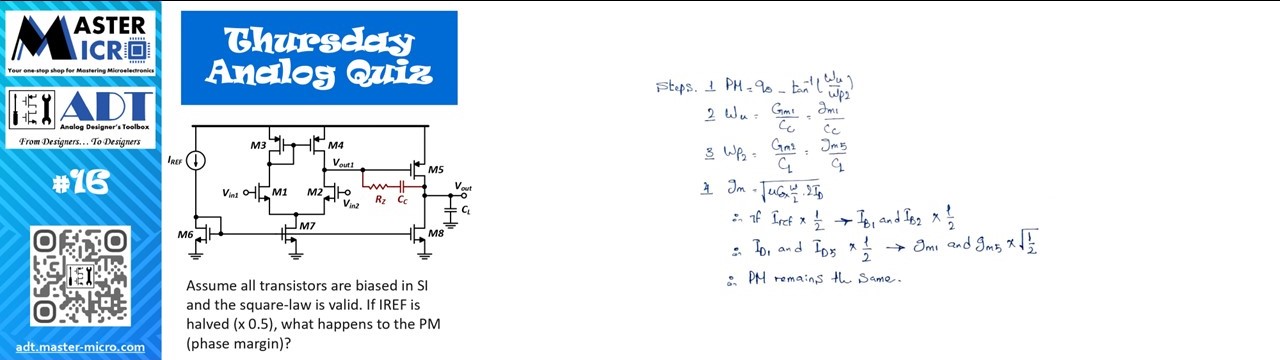 MASTER
MICRO
Your one-stop shop for Mastering Microelectronics
ADT
Analog Designer's Toolbox
From Designers... To Designers
#16
adt.master-micro.com
Thursday
Analog Quiz
M3
M4
IREF
Vout1
M5
Vin1
M1
M2
Vin2
RZ
CC
Vout
CL
M6
M7
M8
Assume all transistors are biased in SI
and the square-law is valid. If IREF is
halved (x 0.5), what happens to the PM
(phase margin)?
Steps. 1 PM = 90 - tan⁻¹(ωu/ωp2)
2 ωu = Gm1/Cc = gm1/Cc
3 ωp2 = Gm2/CL = gm5/CL
4 gm = √(μCox W/L . 2ID)
∴ if Iref × 1/2 → IB1 and IB2 × 1/2
∴ ID1 and ID5 × 1/2 → gm1 and gm5 × √(1/2)
∴ PM remains the same.